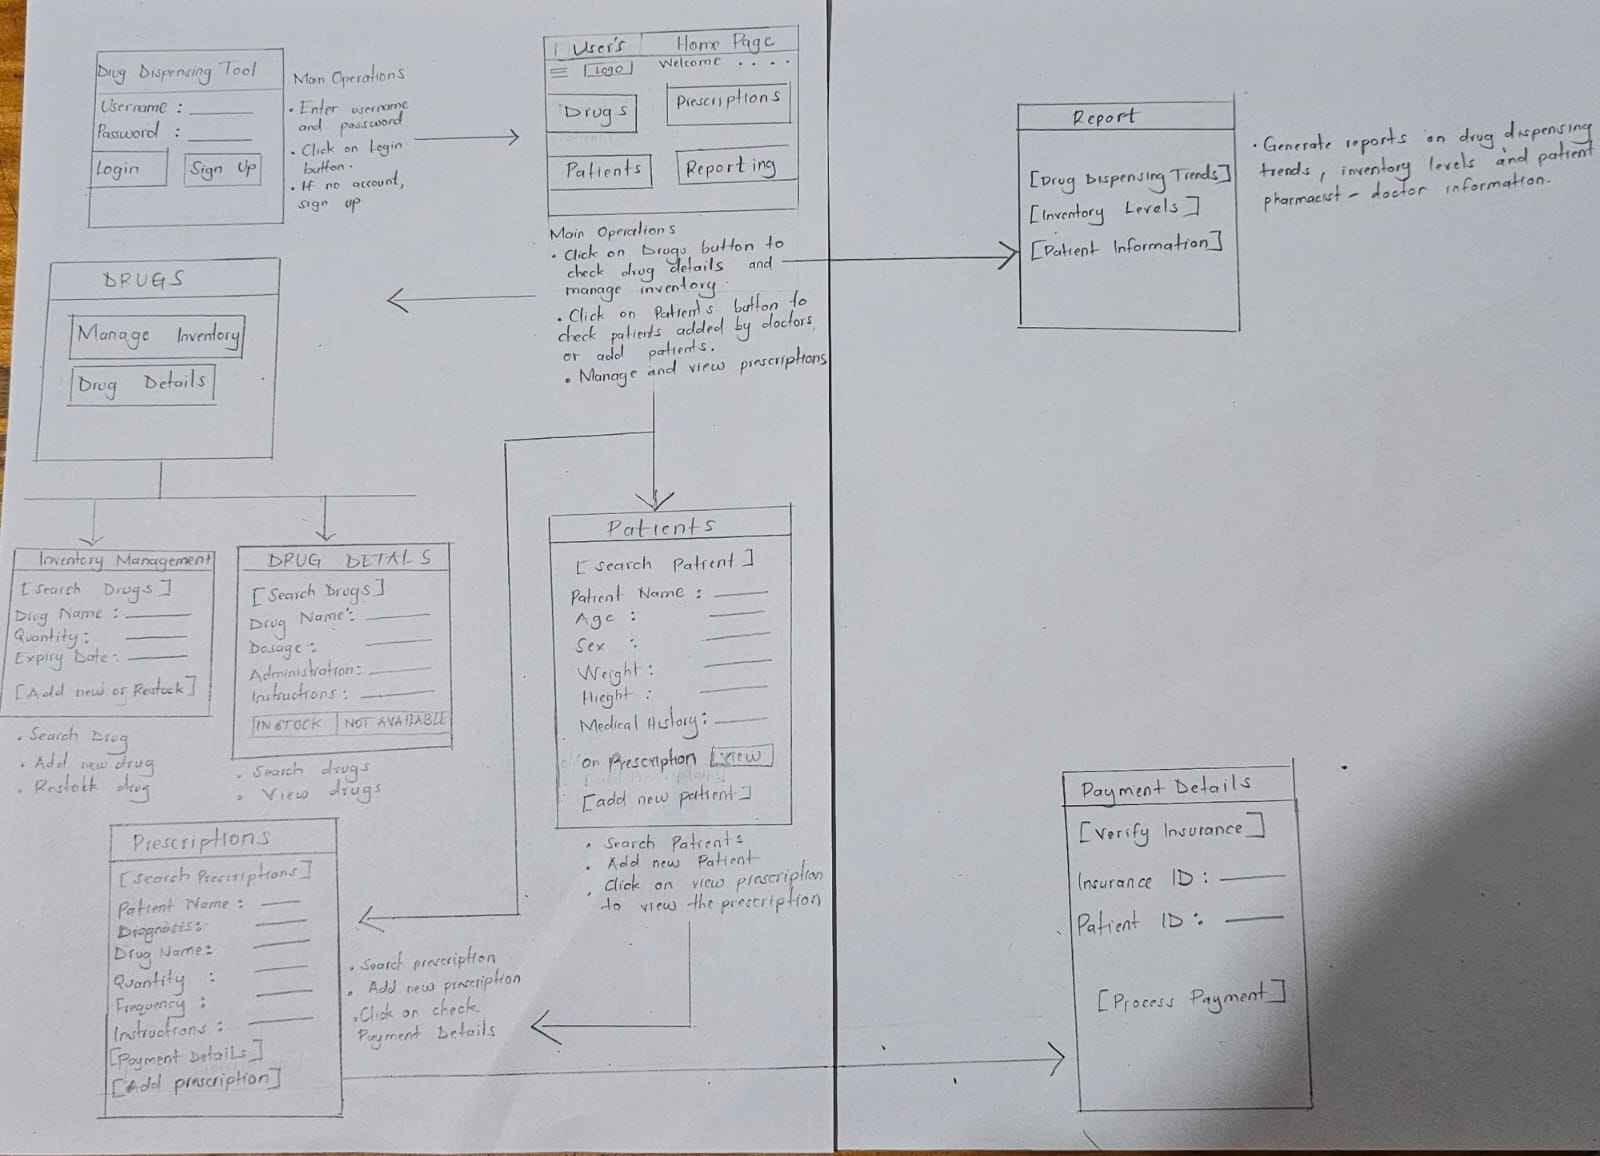 Drug Dispensing Tool
Username :
Password :
Login
Sign Up
Main Operations
• Enter username
and password
• Click on Login
button.
• If no account,
sign up
User's
Home Page
Logo
Welcome . . . .
Drugs
Prescriptions
Patients
Reporting
Main Operations
• Click on Drugs button to
check drug details and
manage inventory.
• Click on Patients button to
check patients added by doctors,
or add patients.
• Manage and view prescriptions
Report
[Drug Dispensing Trends]
[Inventory Levels]
[Patient Information]
• Generate reports on drug dispensing
trends, inventory levels and patient
pharmacist - doctor information.
DRUGS
Manage Inventory
Drug Details
Inventory Management
[Search Drugs]
Drug Name :
Quantity :
Expiry Date :
[Add new or Restock]
• Search Drug
• Add new drug
• Restokk drug
DRUG DETALS
[Search Drugs]
Drug Name :
Dosage :
Administration :
Instructions :
IN STOCK
NOT AVAILABLE
• Search drugs
• View drugs
Patients
[Search Patient]
Patient Name :
Age :
Sex :
Weight :
Hieght :
Medical History :
On Prescription [view]
[add new patient]
• Search Patients
• Add new Patient
• Click on view prescription
to view the prescription
Prescriptions
[Search Prescriptions]
Patient Name :
Diagnosis :
Drug Name :
Quantity :
Frequency :
Instructions :
[Payment Details]
[Add prescription]
• Search prescription
• Add new prescription
• Click on check
Payment Details
Payment Details
[Verify Insurance]
Insurance ID :
Patient ID :
[Process Payment]